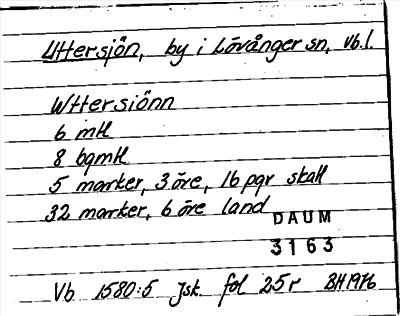 Uttersjön, by i Lövånger sn, Vb.l.
Wttersiönn
6 mtl
8 bqmtl
5 marker, 3 öre, 16 pgr skatt
32 marker, 6 öre land
DAUM
3163
Vb 1580:5 Jsk. fol 25r BH1976